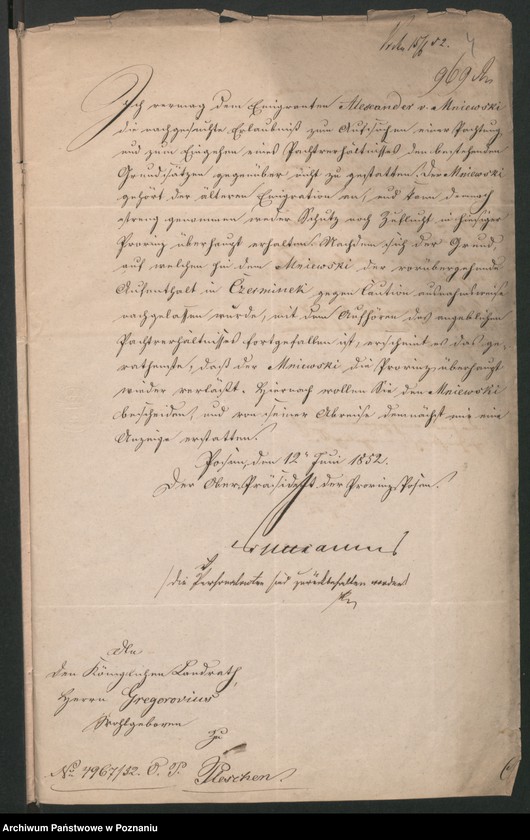 15/6 52.
4
969
Ich vermag dem Emigranten Alexander v. Mniewski
die nachgesuchte Erlaubniß zum Aufsuchen einer Pachtung
und zum Eingehen eines Pachtverhältnisses den bestehenden
Grundsätzen gegenüber nicht zu gestatten. Der Mniewski
gehört der älteren Emigration an, und kann demnach
streng genommen weder Schutz noch Zuflucht in hiesiger
Provinz überhaupt erhalten. Nachdem sich der Grund,
auf welchen hin dem Mniewski der vorübergehende
Aufenthalt in Czerminek gegen Caution ausnahmsweise
nachgelassen wurde, mit dem Aufhören des angeblichen
Pachtverhältnisses fortgefallen ist, erscheint es das ge-
rathenste, daß der Mniewski die Provinz überhaupt
wieder verläßt. Hiernach wollen Sie den Mniewski
bescheiden, und von seiner Abreise demnächst mir eine
Anzeige erstatten.
Posen, den 12t Juni 1852.
Der Ober-Präsident der Provinz Posen.
/ die Personalacten sind zurückbehalten worden
An
den Königlichen Landrath,
Herrn Gregorovius
Wohlgeboren
zu
No 4967/52. O. P. Pleschen.
Archiwum Państwowe w Poznaniu